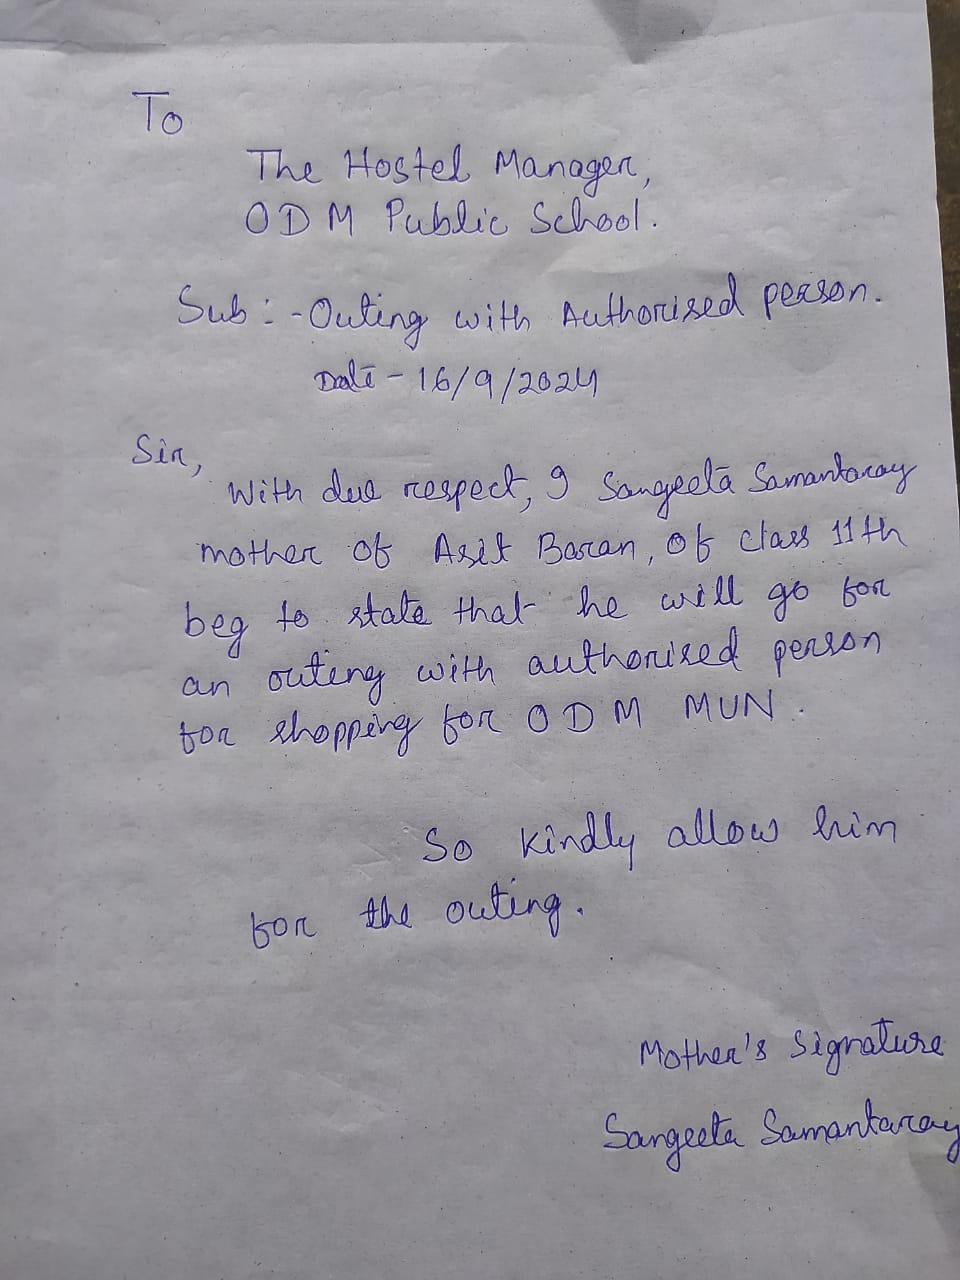 To
The Hostel Manager,
ODM Public School.
Sub:- Outing with Authorised person.
Date - 16/9/2024
Sir,
With due respect, I Sangeeta Samantaray
mother of Asit Baran, of class 11th
beg to state that he will go for
an outing with authorised person
for shopping for ODM MUN.
So kindly allow him
for the outing.
Mother's Signature
Sangeeta Samantaray